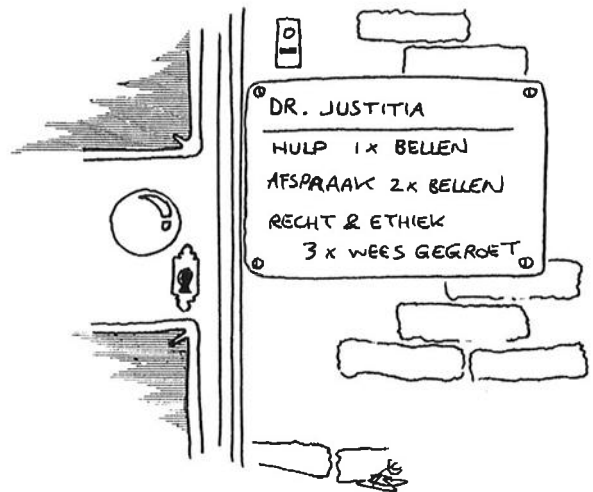 DR. JUSTITIA
HULP 1x BELLEN
AFSPRAAK 2x BELLEN
RECHT & ETHIEK
3x WEES GEGROET